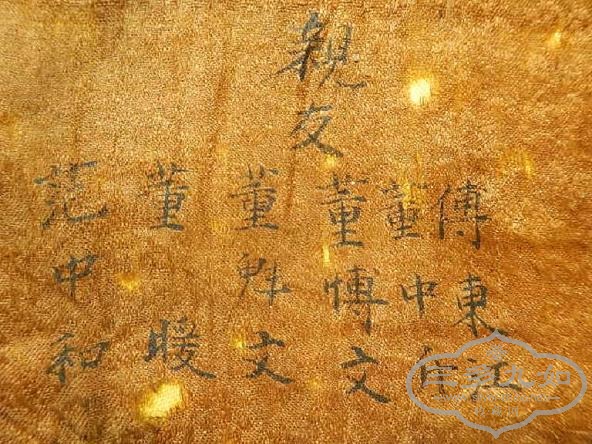 親友
傅東江
董中
董愽文
董魁文
董暖
范中和